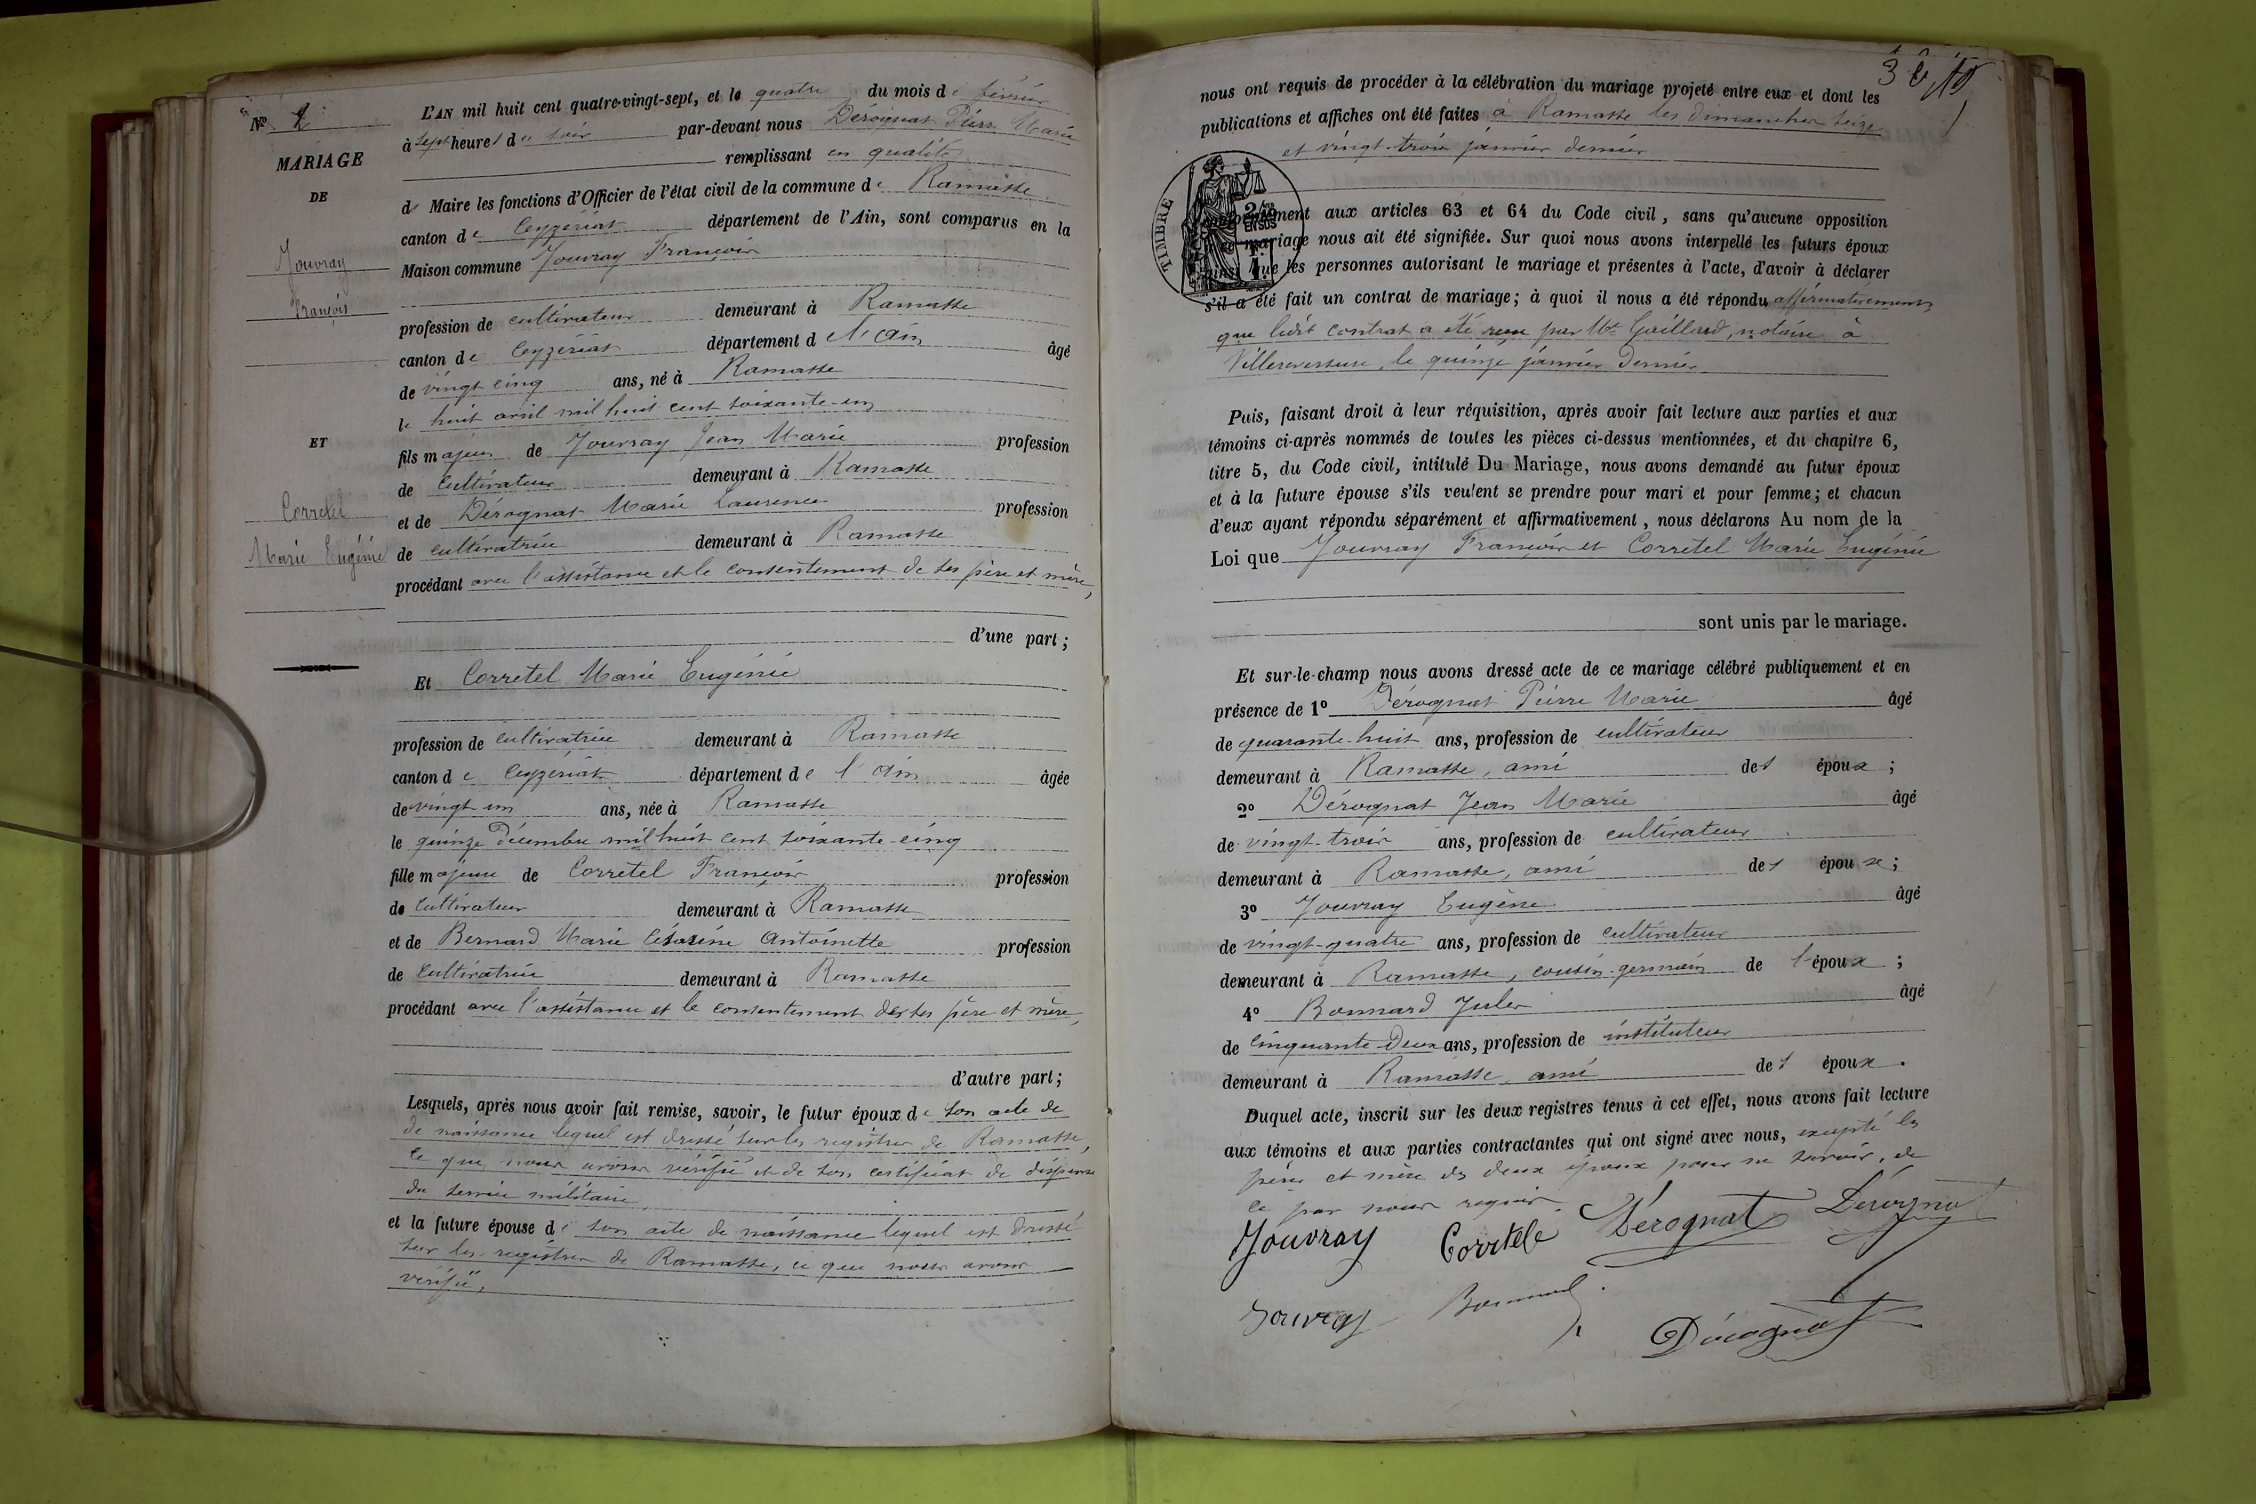 Nº 2
MARIAGE
DE
Jouvray
François
ET
Corretel
Marie Eugénie
L'AN mil huit cent quatre-vingt-sept, et le quatre du mois de février
à sept heures du soir par-devant nous Dérognat Pierre Marie
remplissant en qualité
de Maire les fonctions d'Officier de l'état civil de la commune de Ramasse
canton de Ceyzériat département de l'Ain, sont comparus en la
Maison commune Jouvray François
profession de cultivateur demeurant à Ramasse
canton de Ceyzériat département de l'Ain âgé
de vingt cinq ans, né à Ramasse
le huit avril mil huit cent soixante-un
fils majeur de Jouvray Jean Marie profession
de cultivateur demeurant à Ramasse
et de Dérognat Marie Laurence profession
de cultivatrice demeurant à Ramasse
procédant avec l'assistance et le consentement de ses père et mère,
d'une part ;
Et Corretel Marie Eugénie
profession de cultivatrice demeurant à Ramasse
canton de Ceyzériat département de l'Ain âgée
de vingt un ans, née à Ramasse
le quinze Décembre mil huit cent soixante-cinq
fille majeure de Corretel François profession
de cultivateur demeurant à Ramasse
et de Bernard Marie Césarine Antoinette profession
de cultivatrice demeurant à Ramasse
procédant avec l'assistance et le consentement de ses père et mère,
d'autre part ;
Lesquels, après nous avoir fait remise, savoir, le futur époux de son acte de
de naissance lequel est dressé sur les registres de Ramasse,
ce que nous avons vérifié et de son certificat de dispense
du service militaire
et la future épouse de son acte de naissance lequel est dressé
sur les registres de Ramasse, ce que nous avons
vérifié,
nous ont requis de procéder à la célébration du mariage projeté entre eux et dont les
publications et affiches ont été faites à Ramasse les dimanches seize
et vingt-trois janvier dernier
TIMBRE
2/10es
EN SUS
1 F.
conformément aux articles 63 et 64 du Code civil, sans qu'aucune opposition
au mariage nous ait été signifiée. Sur quoi nous avons interpellé les futurs époux
ainsi que les personnes autorisant le mariage et présentes à l'acte, d'avoir à déclarer
s'il a été fait un contrat de mariage ; à quoi il nous a été répondu affirmativement
que ledit contrat a été reçu par Me Gaillard, notaire à
Villereversure, le quinze janvier dernier
Puis, faisant droit à leur réquisition, après avoir fait lecture aux parties et aux
témoins ci-après nommés de toutes les pièces ci-dessus mentionnées, et du chapitre 6,
titre 5, du Code civil, intitulé Du Mariage, nous avons demandé au futur époux
et à la future épouse s'ils veulent se prendre pour mari et pour femme ; et chacun
d'eux ayant répondu séparément et affirmativement, nous déclarons Au nom de la
Loi que Jouvray François et Corretel Marie Eugénie
sont unis par le mariage.
Et sur-le-champ nous avons dressé acte de ce mariage célébré publiquement et en
présence de 1º Dérognat Pierre Marie âgé
de quarante-huit ans, profession de cultivateur
demeurant à Ramasse, ami des époux ;
2º Dérognat Jean Marie âgé
de vingt-trois ans, profession de cultivateur
demeurant à Ramasse, ami des époux ;
3º Jouvray Eugène âgé
de vingt-quatre ans, profession de cultivateur
demeurant à Ramasse, cousin-germain de l'époux ;
4º Bonnard Jules âgé
de cinquante-deux ans, profession de instituteur
demeurant à Ramasse, ami des époux.
Duquel acte, inscrit sur les deux registres tenus à cet effet, nous avons fait lecture
aux témoins et aux parties contractantes qui ont signé avec nous, excepté les
pères et mère des deux époux pour ne savoir, de
ce par nous requis.
Jouvray Corretel Dérognat Dérognat
Jouvray Bonnard Dérognat